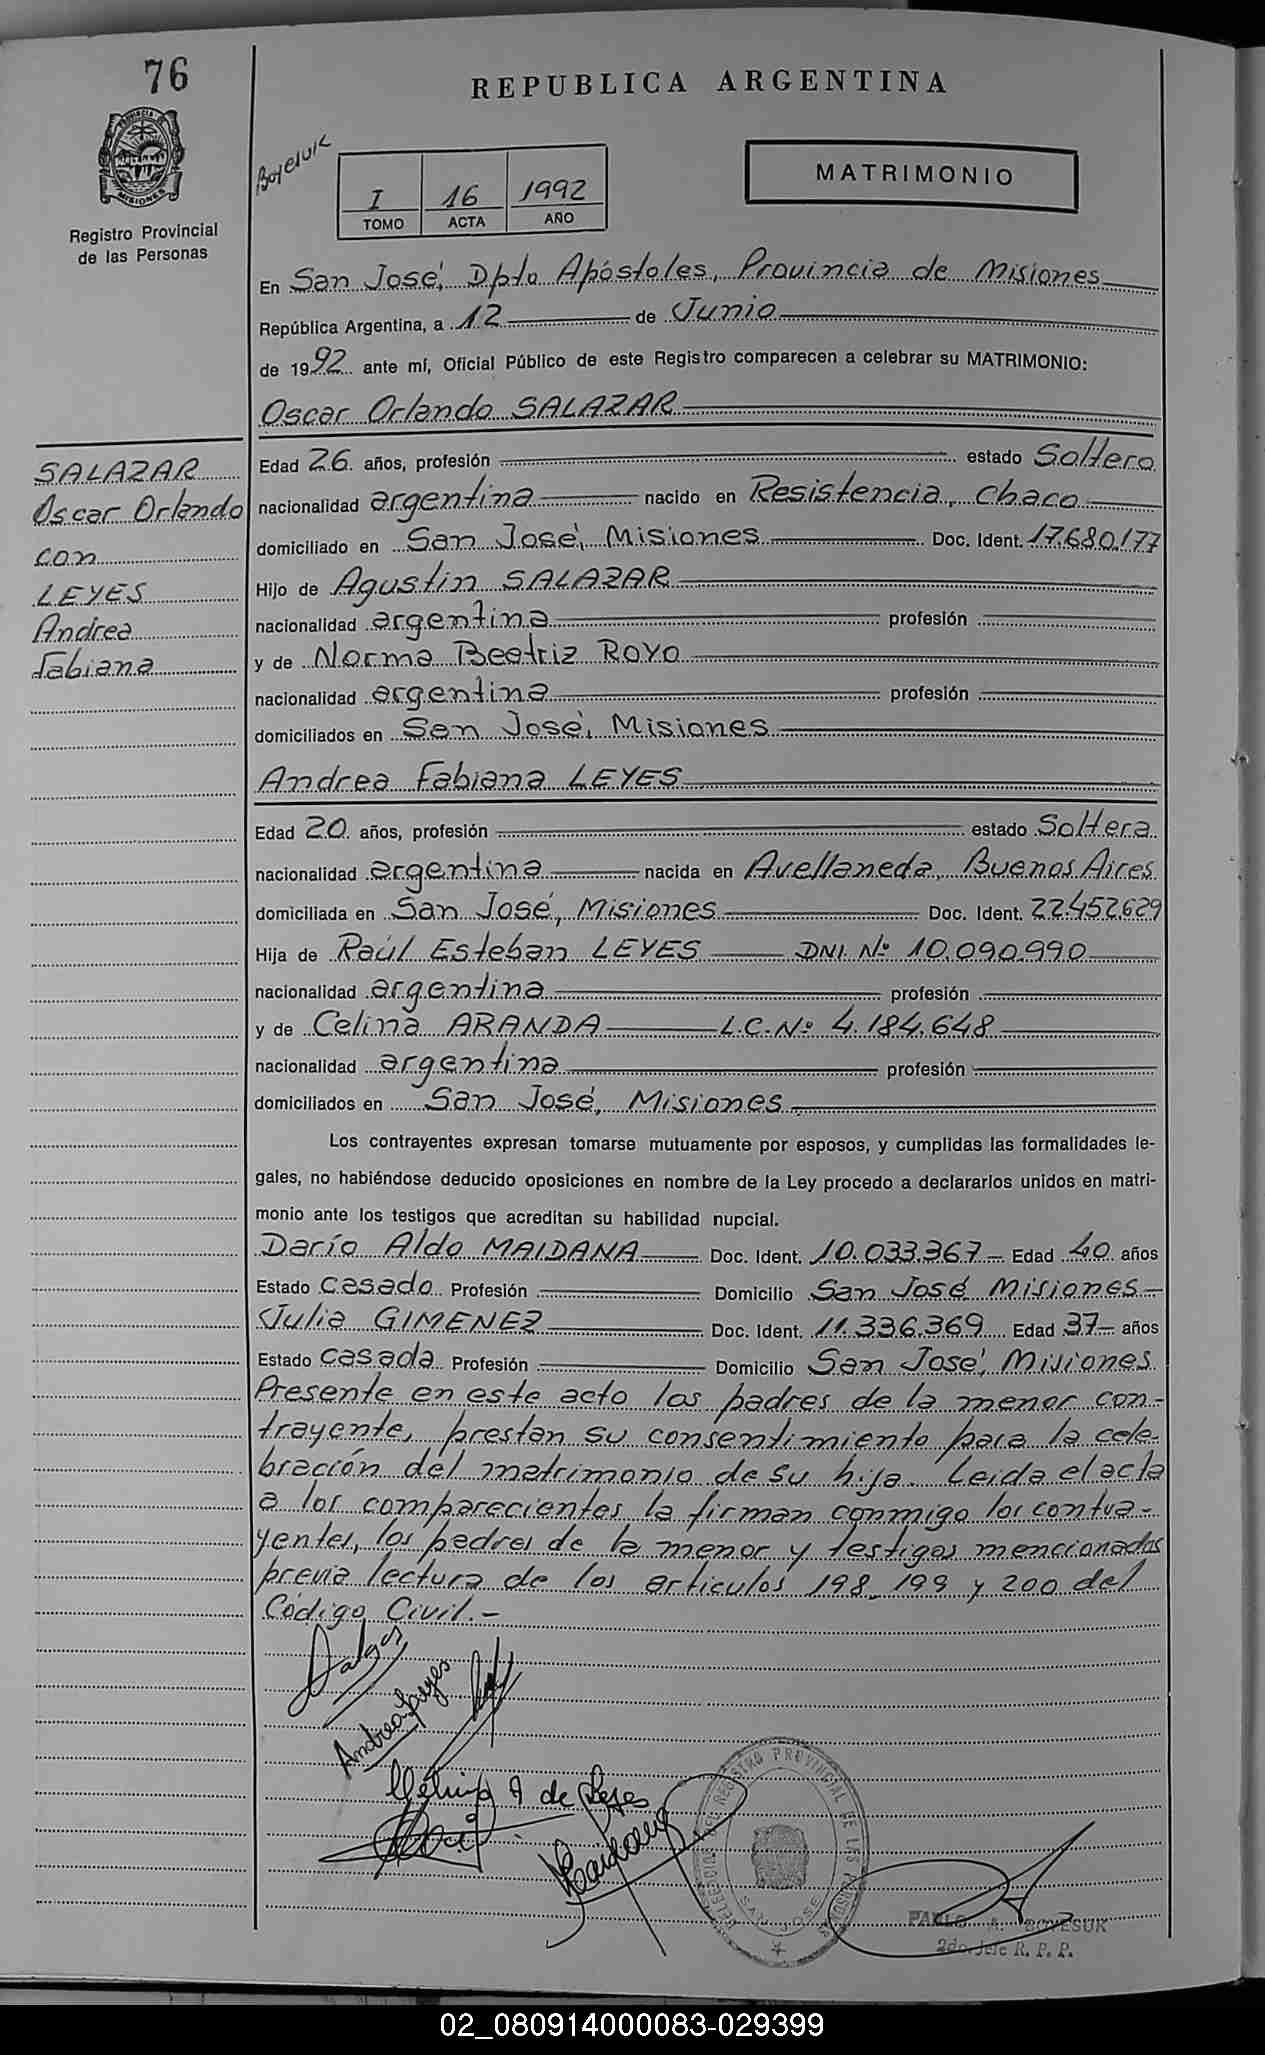 76
REPUBLICA ARGENTINA
PROVINCIA DE MISIONES
Registro Provincial
de las Personas
Boyesuk
I 16 1992
TOMO ACTA AÑO
MATRIMONIO
En San José, Dpto Apóstoles, Provincia de Misiones
República Argentina, a 12 de Junio
de 1992 ante mí, Oficial Público de este Registro comparecen a celebrar su MATRIMONIO:
Oscar Orlando SALAZAR
SALAZAR
Oscar Orlando
con
LEYES
Andrea
Fabiana
Edad 26 años, profesión estado Soltero
nacionalidad argentina nacido en Resistencia, Chaco
domiciliado en San José, Misiones Doc. Ident. 17.680.177
Hijo de Agustin SALAZAR
nacionalidad argentina profesión
y de Norma Beatriz ROYO
nacionalidad argentina profesión
domiciliados en San José, Misiones
Andrea Fabiana LEYES
Edad 20 años, profesión estado Soltera
nacionalidad argentina nacida en Avellaneda, Buenos Aires
domiciliada en San José, Misiones Doc. Ident. 22.452.629
Hija de Raúl Esteban LEYES DNI. Nº 10.090.990
nacionalidad argentina profesión
y de Celina ARANDA L.C. Nº 4.184.648
nacionalidad argentina profesión
domiciliados en San José, Misiones
Los contrayentes expresan tomarse mutuamente por esposos, y cumplidas las formalidades le-
gales, no habiéndose deducido oposiciones en nombre de la Ley procedo a declararlos unidos en matri-
monio ante los testigos que acreditan su habilidad nupcial.
Darío Aldo MAIDANA Doc. Ident. 10.033.367 Edad 40 años
Estado casado Profesión Domicilio San José Misiones
Julia GIMENEZ Doc. Ident. 11.336.369 Edad 37 años
Estado casada Profesión Domicilio San José, Misiones
Presente en este acto los padres de la menor con-
trayente, prestan su consentimiento para la cele-
bración del matrimonio de su hija. Leida el acta
a los comparecientes la firman conmigo los contra-
yentes, los padres de la menor y testigos mencionados
previa lectura de los articulos 198, 199 y 200 del
Código Civil.-
Andrea Leyes
Celina A de Leyes
Maidana
REGISTRO PROVINCIAL DE LAS PERSONAS
PABLO A. BOYESUK
2do. Jefe R. P. P.
02_080914000083-029399